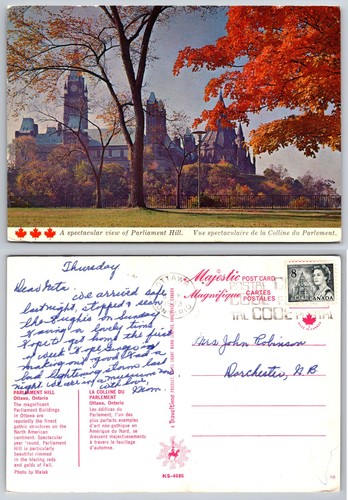 A spectacular view of Parliament Hill. Vue spectaculaire de la Colline du Parlement.
Thursday
Dear Meta
we arrived safe
last night, stopped & seen
the on Sunday
Having a lovely time
Hope to get home the first
of week Hope
making out good Had a
bad lightning storm last
night we are in a museum now
with love
Mom.
PARLIAMENT HILL
Ottawa, Ontario
The magnificent
Parliament Buildings
in Ottawa are
reputedly the finest
gothic structures on the
North American
continent. Spectacular
year 'round, Parliament
Hill is particularly
beautiful rimmed
in the blazing reds
and golds of Fall.
Photo by Malak
LA COLLINE DU
PARLEMENT
Ottawa, Ontario
Les édifices du
Parlement, l'un des
plus parfaits exemples
d'art néo-gothique en
Amérique du Nord, se
dressent majestueusement
à travers le feuillage
d'automne.
Traveltime
KS-4685
Majestic POST CARD
Magnifique CARTES
POSTALES
POSTAL
CODE
8
CANADA
Mrs John Robinson
Dorchester, N B